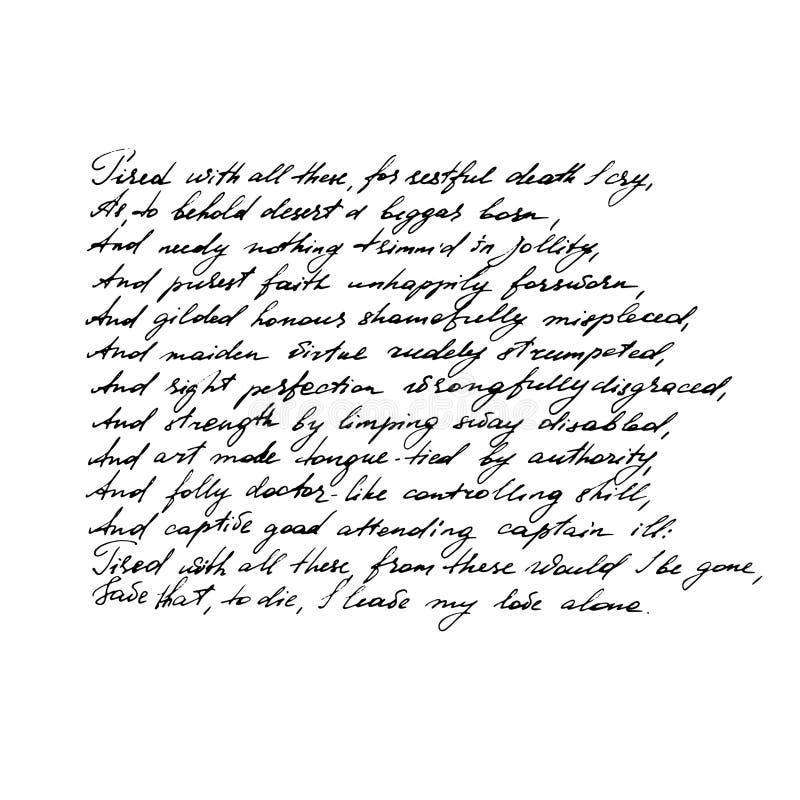 Tired with all these, for restful death I cry,
As, to behold desert a beggar born,
And needy nothing trimm'd in jollity,
And purest faith unhappily forsworn,
And gilded honour shamefully misplaced,
And maiden virtue rudely strumpeted,
And right perfection wrongfully disgraced,
And strength by limping sway disabled,
And art made tongue-tied by authority,
And folly doctor-like controlling skill,
And captive good attending captain ill:
Tired with all these, from these would I be gone,
Save that, to die, I leave my love alone.